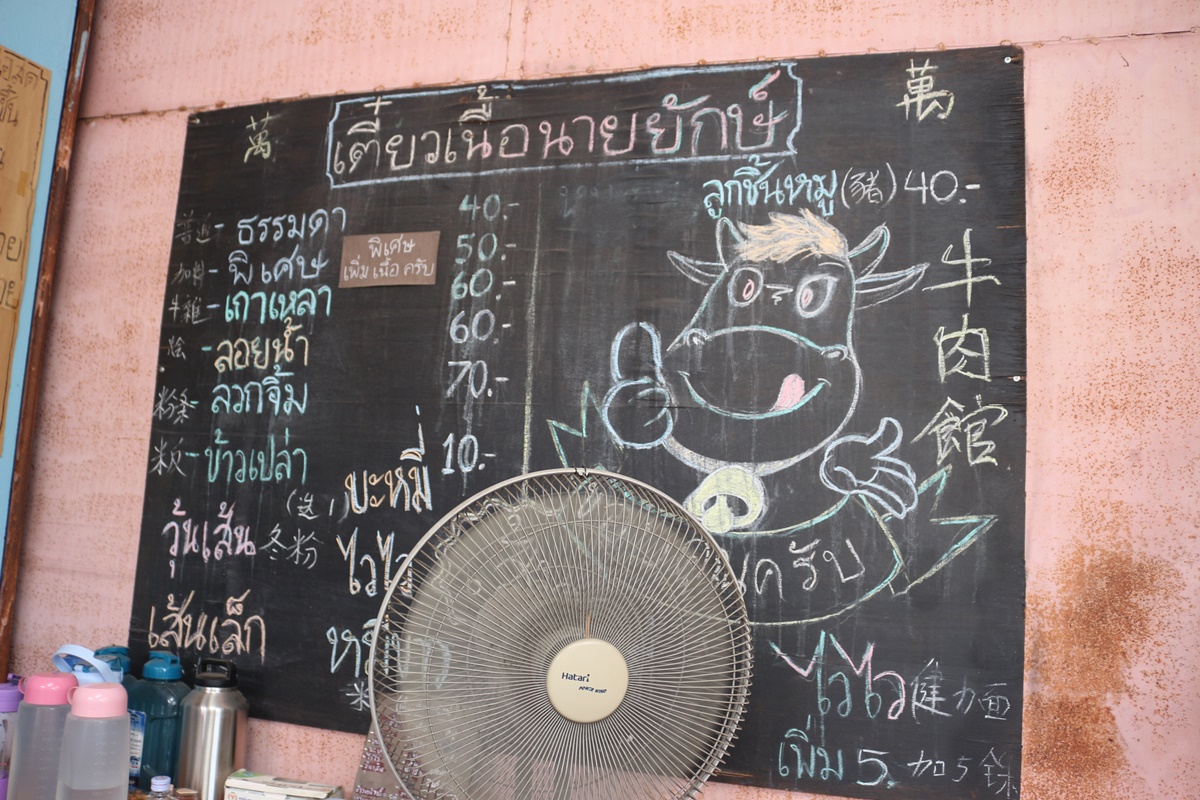 萬
เตี๋ยวเนื้อนายยักษ์
萬
ลูกชิ้นหมู (豬) 40.-
普通 - ธรรมดา 40.-
พิเศษ
เพิ่ม เนื้อ ครับ
加料 - พิเศษ 50.-
牛雜 - เกาเหลา 60.-
- ลอยน้ำ 60.-
- ลวกจิ้ม 70.-
- ข้าวเปล่า 10.-
牛肉館
บะหมี่
วุ้นเส้น 冬粉
ไวไว
เส้นเล็ก
ครับ
ไวไว 健力面
เพิ่ม 5. 加5銖
Hatari
POWER WIND